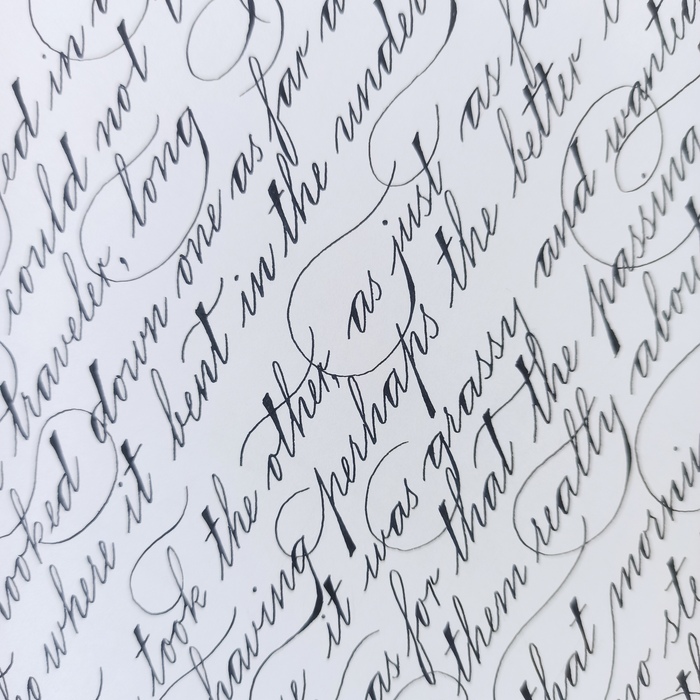 ed in a
could not
traveler, long
looked down one as far as
to where it bent in the under
took the other, as just as fa
having perhaps the better
it was grassy and wanted
as for that the passing
them really abou
that mornin
no st